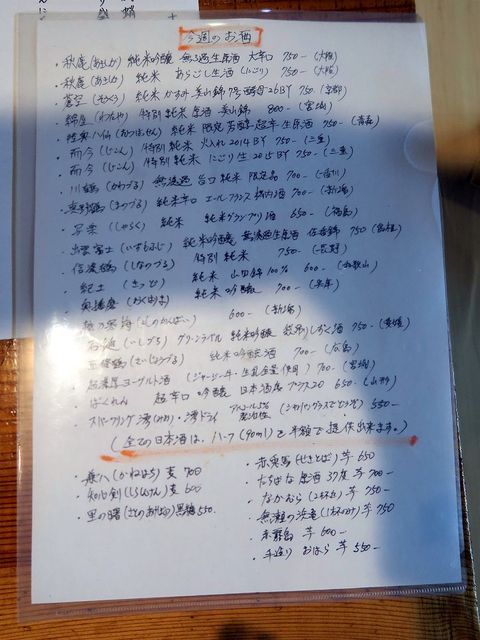 今週のお酒
・秋鹿 (あきしか) 純米吟醸 無ろ過生原酒 大辛口 750- (大阪)
・秋鹿 (あきしか) 純米 あらごし生酒 (にごり) 750- (大阪)
・蒼空 (そうくう) 純米 かすみ 美山錦 7号酵母 26BY 750 (京都)
・綿屋 (わたや) 特別純米 原酒 美山錦 800- (宮城)
・陸奥八仙 (むつはっせん) 純米 限定 芳醇超辛 生原酒 750- (青森)
・而今 (じこん) 特別純米 火入れ 2014BY 750- (三重)
・而今 (じこん) 特別純米 にごり生 2015BY 750- (三重)
・川鶴 (かわづる) 無濾過 旨口純米 限定品 700- (香川)
・真野鶴 (まのづる) 純米辛口 エールフランス機内酒 700- (新潟)
・写楽 (しゃらく) 純米 純米グランプリ酒 650- (福島)
・出雲富士 (いずもふじ) 純米吟醸 無濾過生原酒 佐香錦 750
・信濃鶴 (しなのづる) 特別純米 750- (長野)
・紀土 (きっど) 純米 山田錦100% 600- (和歌山)
・奥播磨 (おくはりま) 純米吟醸 700- (兵庫)
600- (新潟)
石鎚 (いしづち) グリーンラベル 純米吟醸 槽搾り 750- (愛媛)
(さいじょうづる) 純米吟醸酒 700- (広島)
・超濃厚ヨーグルト酒 (ジャージー牛 生乳全量使用) 700- (宮城)
・ばくれん 超辛口 吟醸 日本酒度プラス20 650- (山形)
・スパークリング 澪 (みお)・澪ドライ アルコール5% (シャンパングラスでどうぞ) 550-
(全ての日本酒は、ハーフ(90ml)を半額で提供出来ます。)
・兼八 (かねはち) 麦 700
・知心剣 (しらしんけん) 麦 600
・里の曙 (さとのあけぼの) 黒糖 550-
・赤兎馬 (せきとば) 芋 650
・たちばな原酒 37度 芋 700-
・なかむら (2杯分) 芋 750-
・無濾の浜亀 芋 750
・赤霧島 芋 600-
・手造り おはら 芋 550-